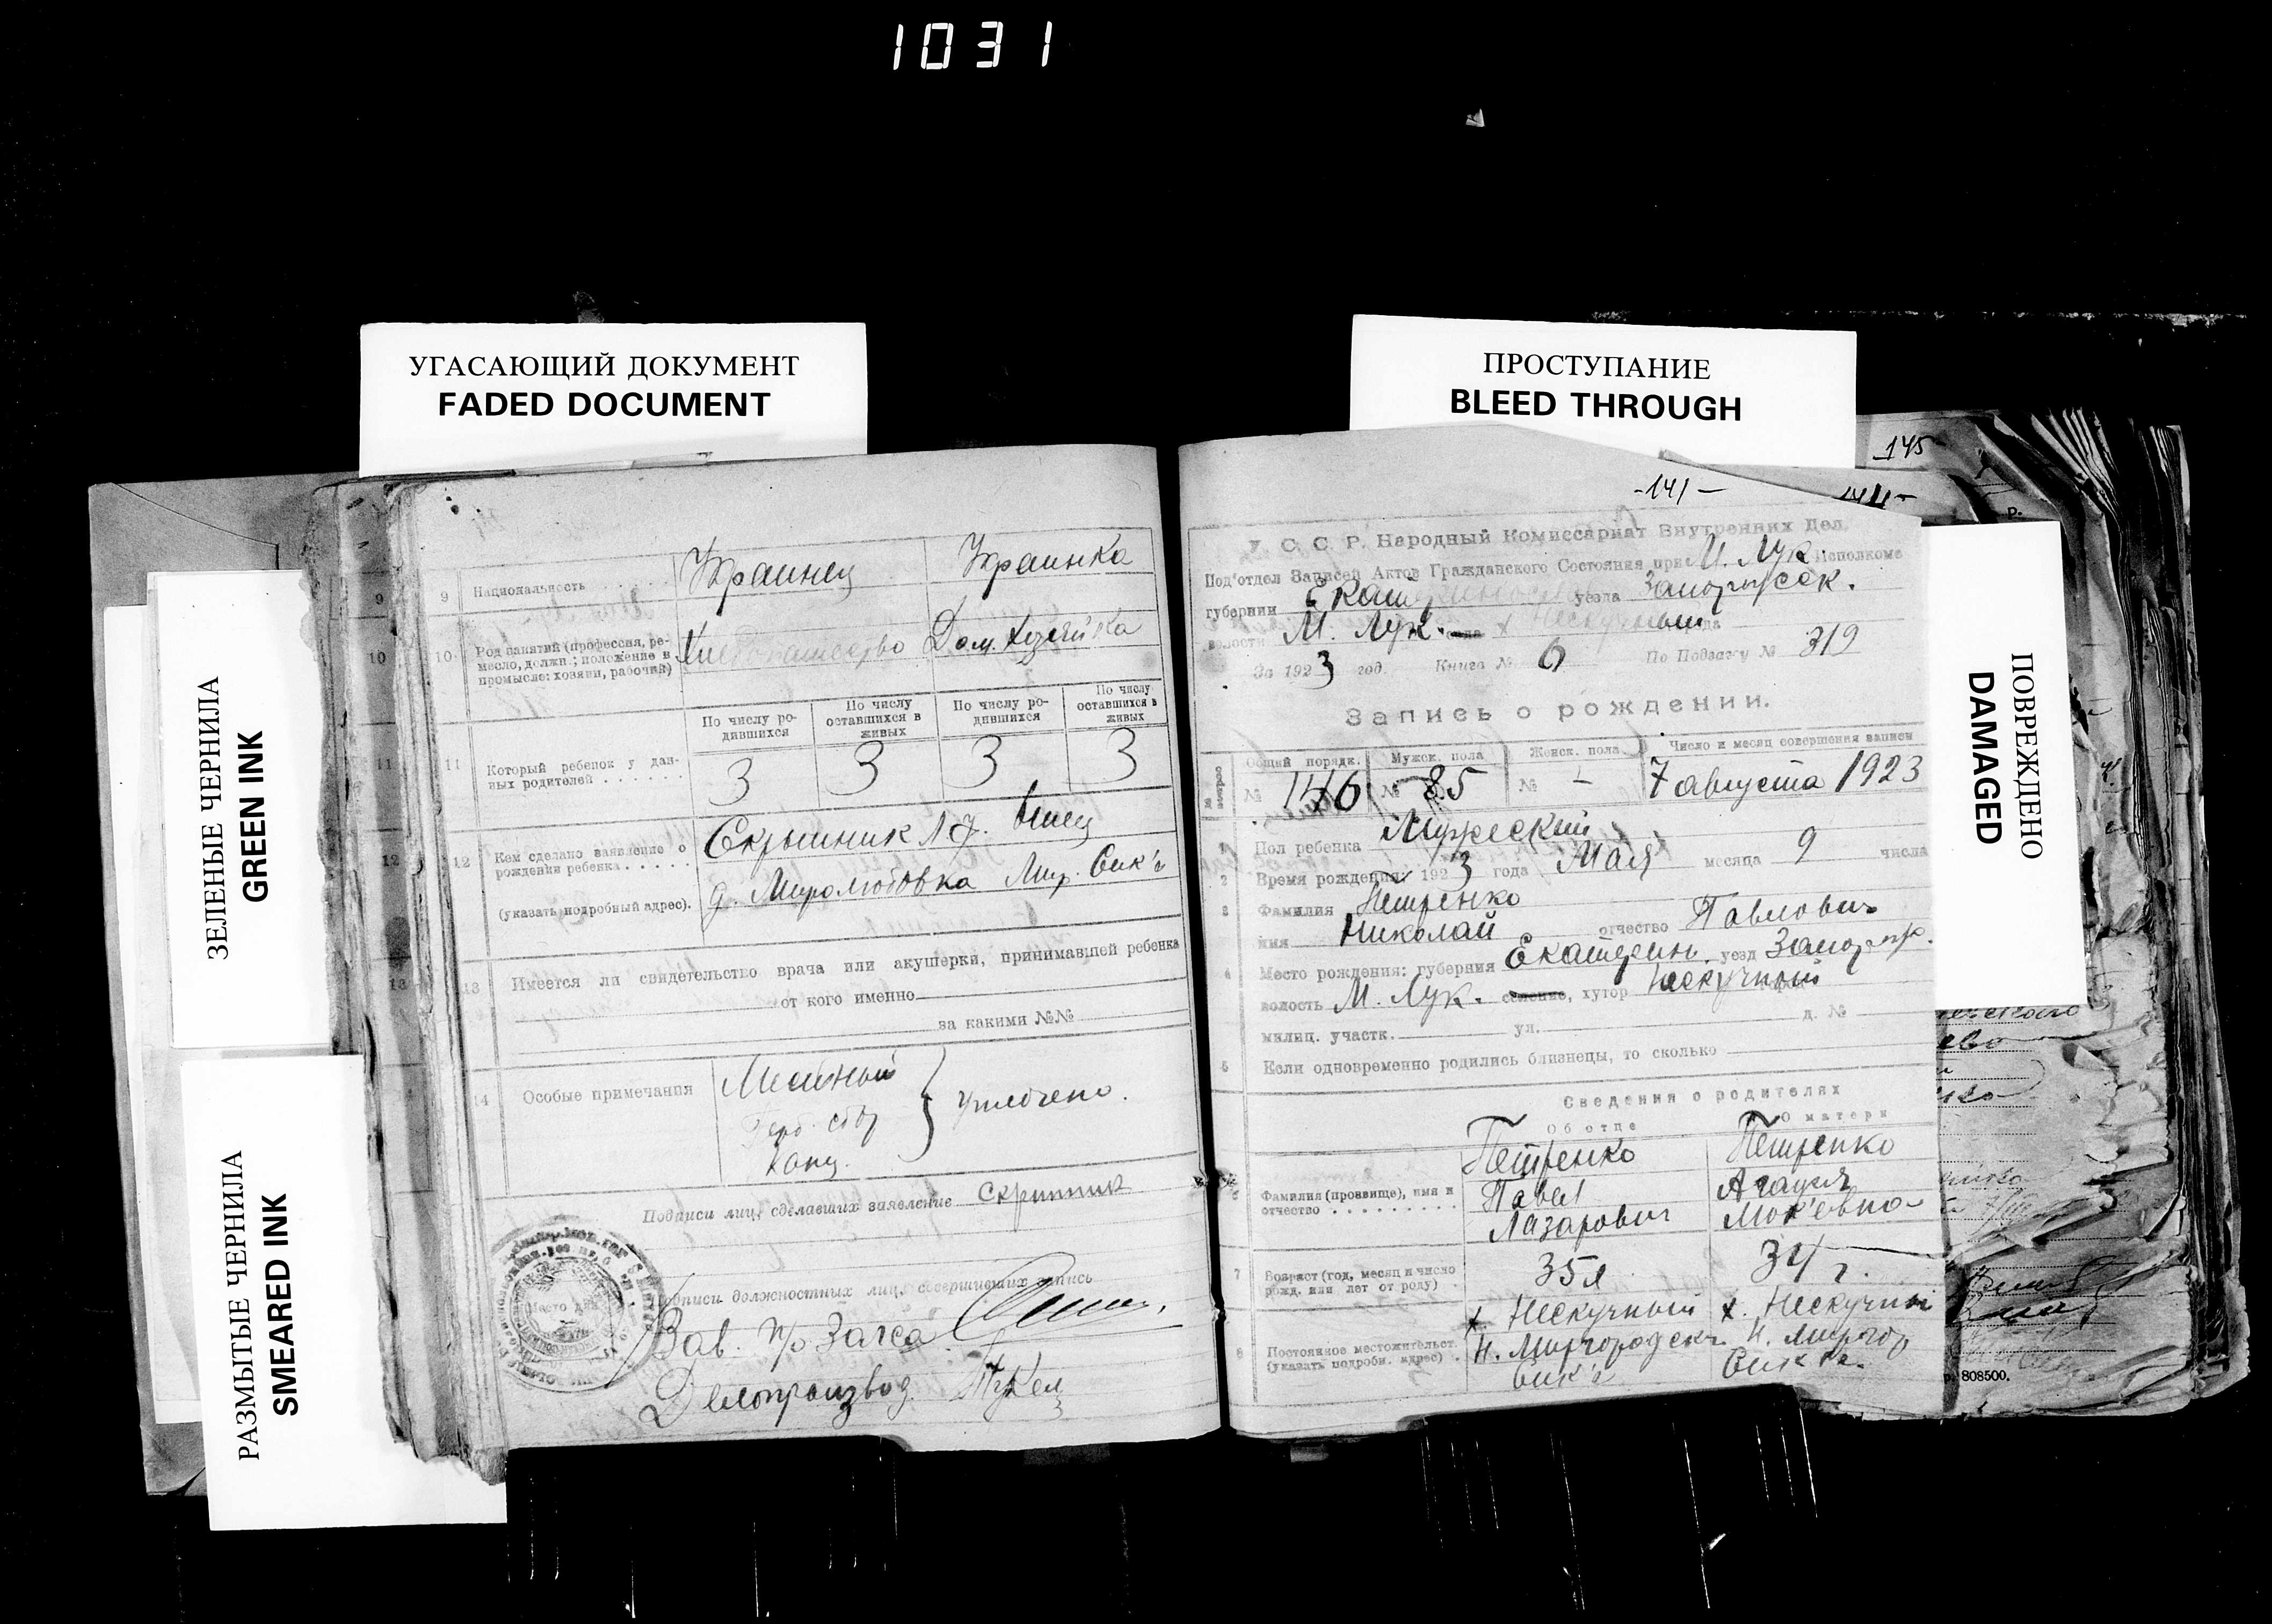 1031
УГАСАЮЩИЙ ДОКУМЕНТ
FADED DOCUMENT
ПРОСТУПАНИЕ
BLEED THROUGH
ЗЕЛЕНЫЕ ЧЕРНИЛА
GREEN INK
РАЗМЫТЫЕ ЧЕРНИЛА
SMEARED INK
ПОВРЕЖДЕНО
DAMAGED
9 Национальность Украинец Украинка
10 Род занятий (профессия, ре-
месло, должн.; положение в
промысле: хозяин, рабочий)
Хлебопашество Дом. хозяйка
По числу ро-
дившихся
По числу
оставшихся в
живых
По числу ро-
дившихся
По числу
оставшихся в
живых
11 Который ребенок у дан-
ных родителей 3 3 3 3
12 Кем сделано заявление о
рождении ребенка
(указать подробный адрес).
Скрыпник
д. Миролюбовка Мир. Сик'а
13 Имеется ли свидетельство врача или акушерки, принимавшей ребенка
от кого именно
за какими №№
14 Особые примечания
Местный
Герб. сбор
Канц.
Уплочено.
Подписи лиц, сделавших заявление Скрипник
Подписи должностных лиц, совершивших запись
Зав. п/о Загса
Делопроизвод.
145
-141-
У. С. С. Р. Народный Комиссариат Внутренних Дел,
Под'отдел Записей Актов Гражданского Состояния при М. Лук. Исполкоме
губернии Екатеринос уезда Запорожск.
волости М. Лук. х Нескучный
За 1923 год. Книга № 6 По Подвагу № 319
Запись о рождении.
Общий порядк. Мужск. пола Женск. пола Число и месяц совершения записи
№ 146 № 85 № - 7 августа 1923
1 Пол ребенка Мужеский
2 Время рождения: 1923 года Мая месяца 9 числа
3 Фамилия Петренко
имя Николай отчество Павлович
4 Место рождения: губерния Екатерин. уезд Запорож.
волость М. Лук. селение, хутор Нескучный
милиц. участк. ул. д. №
5 Если одновременно родились близнецы, то сколько
Сведения о родителях
Об отце О матери
6 Фамилия (прозвище), имя и
отчество
Петренко Петренко
Павел
Лазарович Мок'евна
7 Возраст (год, месяц и число
рожд. или лет от роду)
35 л. 34 г.
8 Постоянное местожительст.
(указать подробн. адрес)
х. Нескучный х. Нескучный
Н. Миргородск. Н. Миргор
Сик'а
808500.